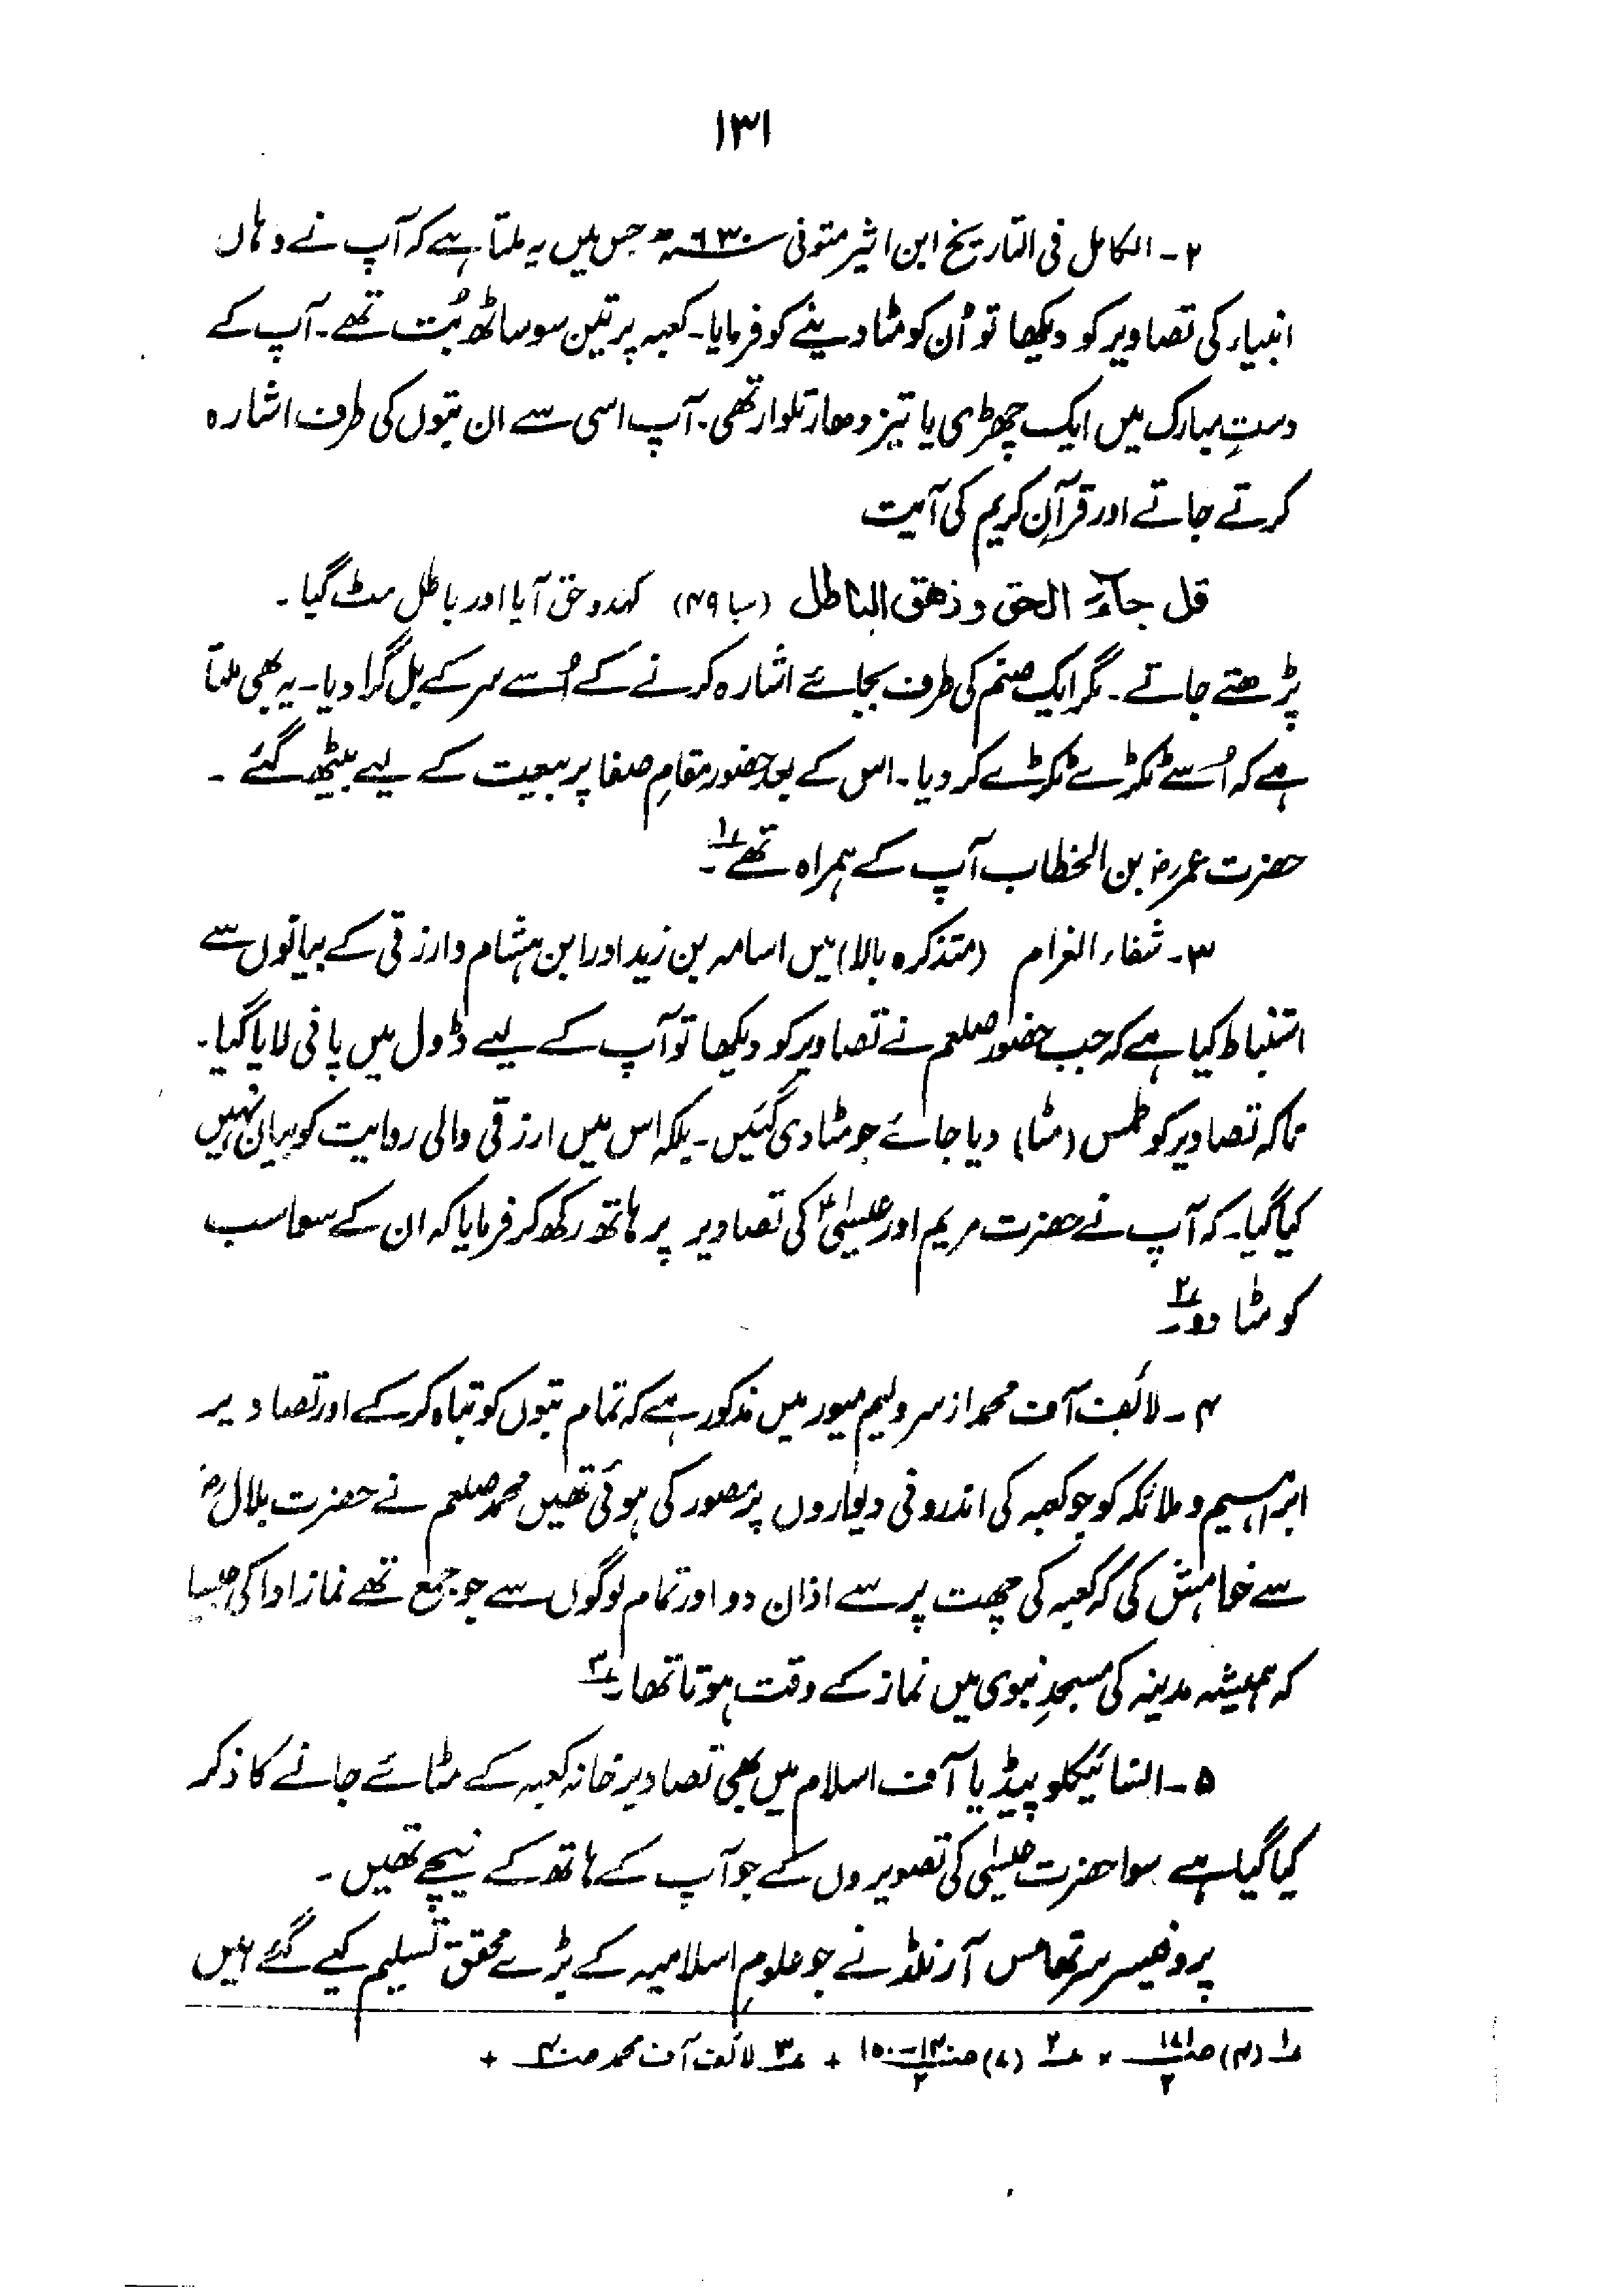 ۱۳۱
۲۔ الکامل فی التاریخ ابن اثیر متوفی ۶۳۰ھ جس میں یہ ملتا ہے کہ آپ نے وہاں
انبیاء کی تصاویر کو دیکھا تو اُن کو مٹا دینے کو فرمایا۔ کعبہ پر تین سو ساٹھ بُت تھے۔ آپ کے
دستِ مبارک میں ایک چھڑی یا تیز دھار تلوار تھی۔ آپ اسی سے ان بتوں کی طرف اشارہ
کرتے جاتے اور قرآنِ کریم کی آیت
قل جآء الحق و ذھق الباطل (سبا ۴۹) کہدو حق آیا اور باطل مٹ گیا۔
پڑھتے جاتے۔ مگر ایک صنم کی طرف بجائے اشارہ کرنے کے اُسے سر کے بل گرا دیا۔ یہ بھی ملتا
ہے کہ اُسے ٹکڑے ٹکڑے کر دیا۔ اس کے بعد حضور مقامِ صفا پر بیعت کے لیے بیٹھ گئے۔
حضرت عمرؓ بن الخطاب آپ کے ہمراہ تھے۔ ۱؎
۳۔ شفاء الغرام (متذکرہ بالا) میں اسامہ بن زید اور ابن ہشام و ارزقی کے بیانوں سے
استنباط کیا ہے کہ جب حضور صلعم نے تصاویر کو دیکھا تو آپ کے لیے ڈول میں پانی لایا گیا۔
تاکہ تصاویر کو طمس (مٹا) دیا جائے جو مٹا دی گئیں۔ بلکہ اس میں ارزقی والی روایت کو بیان نہیں
کیا گیا۔ کہ آپ نے حضرت مریم اور عیسیٰؑ کی تصاویر پر ہاتھ رکھ کر فرمایا کہ ان کے سوا سب
کو مٹا دو۔ ۲؎
۴۔ لائف آف محمد از سر ولیم میور میں مذکور ہے کہ تمام بتوں کو تباہ کر کے اور تصاویر
ابراہیم و ملائکہ کو جو کعبہ کی اندرونی دیواروں پر مصور کی ہوئی تھیں محمد صلعم نے حضرت بلالؓ
سے خواہش کی کہ کعبہ کی چھت پر سے اذان دو اور تمام لوگوں سے جو جمع تھے نماز ادا کی جیسا
کہ ہمیشہ مدینہ کی مسجدِ نبوی میں نماز کے وقت ہوتا تھا۔ ۳؎
۵۔ انسائیکلوپیڈیا آف اسلام میں بھی تصاویر خانہ کعبہ کے مٹائے جانے کا ذکر
کیا گیا ہے سوا حضرت عیسٰی کی تصویروں کے جو آپ کے ہاتھ کے نیچے تھیں۔
پروفیسر سر تھامس آرنلڈ نے جو علومِ اسلامیہ کے بڑے محقق تسلیم کیے گئے ہیں
۱؎ (۴) + ۲؎ (۸) + ۳؎ لائف آف محمد +